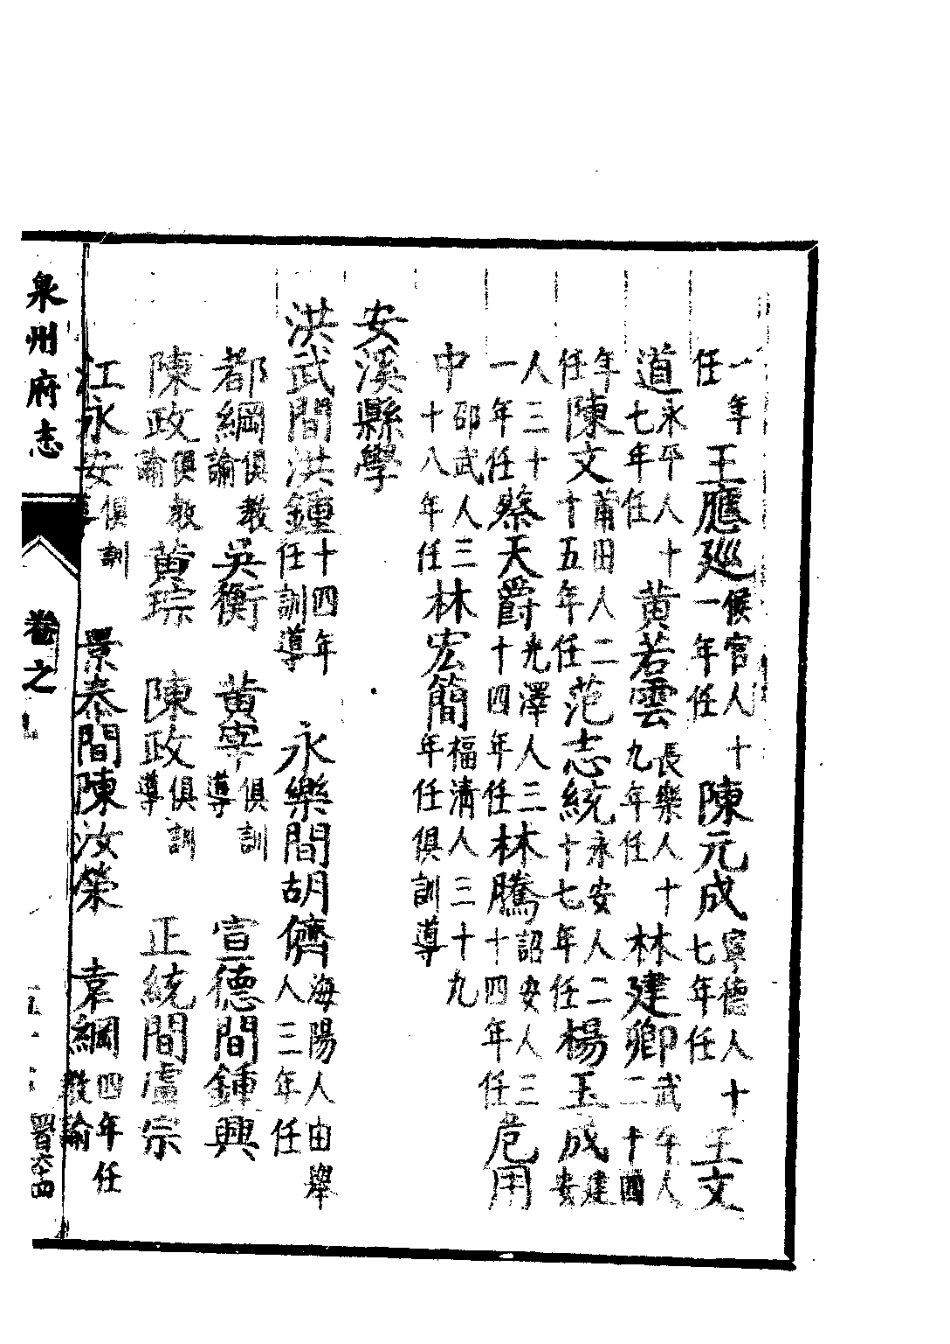 一年任 王應廵 候官人十一年任 陳元成 寧德人十七年任 王文
道 永平人十七年任 黄若雲 長樂人十九年任 林建卿 武平人二十四
年任 陳文 莆田人二十五年任 范志統 永安人二十七年任 楊玉成 建安
人三十一年任 蔡天爵 光澤人三十四年任 林騰 詔安人三十四年任 危用
中 邵武人三十八年任 林宏簡 福清人三十九年任俱訓導
安溪縣學
洪武間洪鍾 十四年任訓導 永樂間胡儕 海陽人由舉人三年任
都綱 俱教諭 吳衡 黄寧 俱訓導 宣德間鍾興
陳政 俱教諭 黄琮 陳政 俱訓導 正統間盧宗
江永安 俱訓導 景泰間陳汝榮 袁綱 四年任教諭
泉州府志 卷之